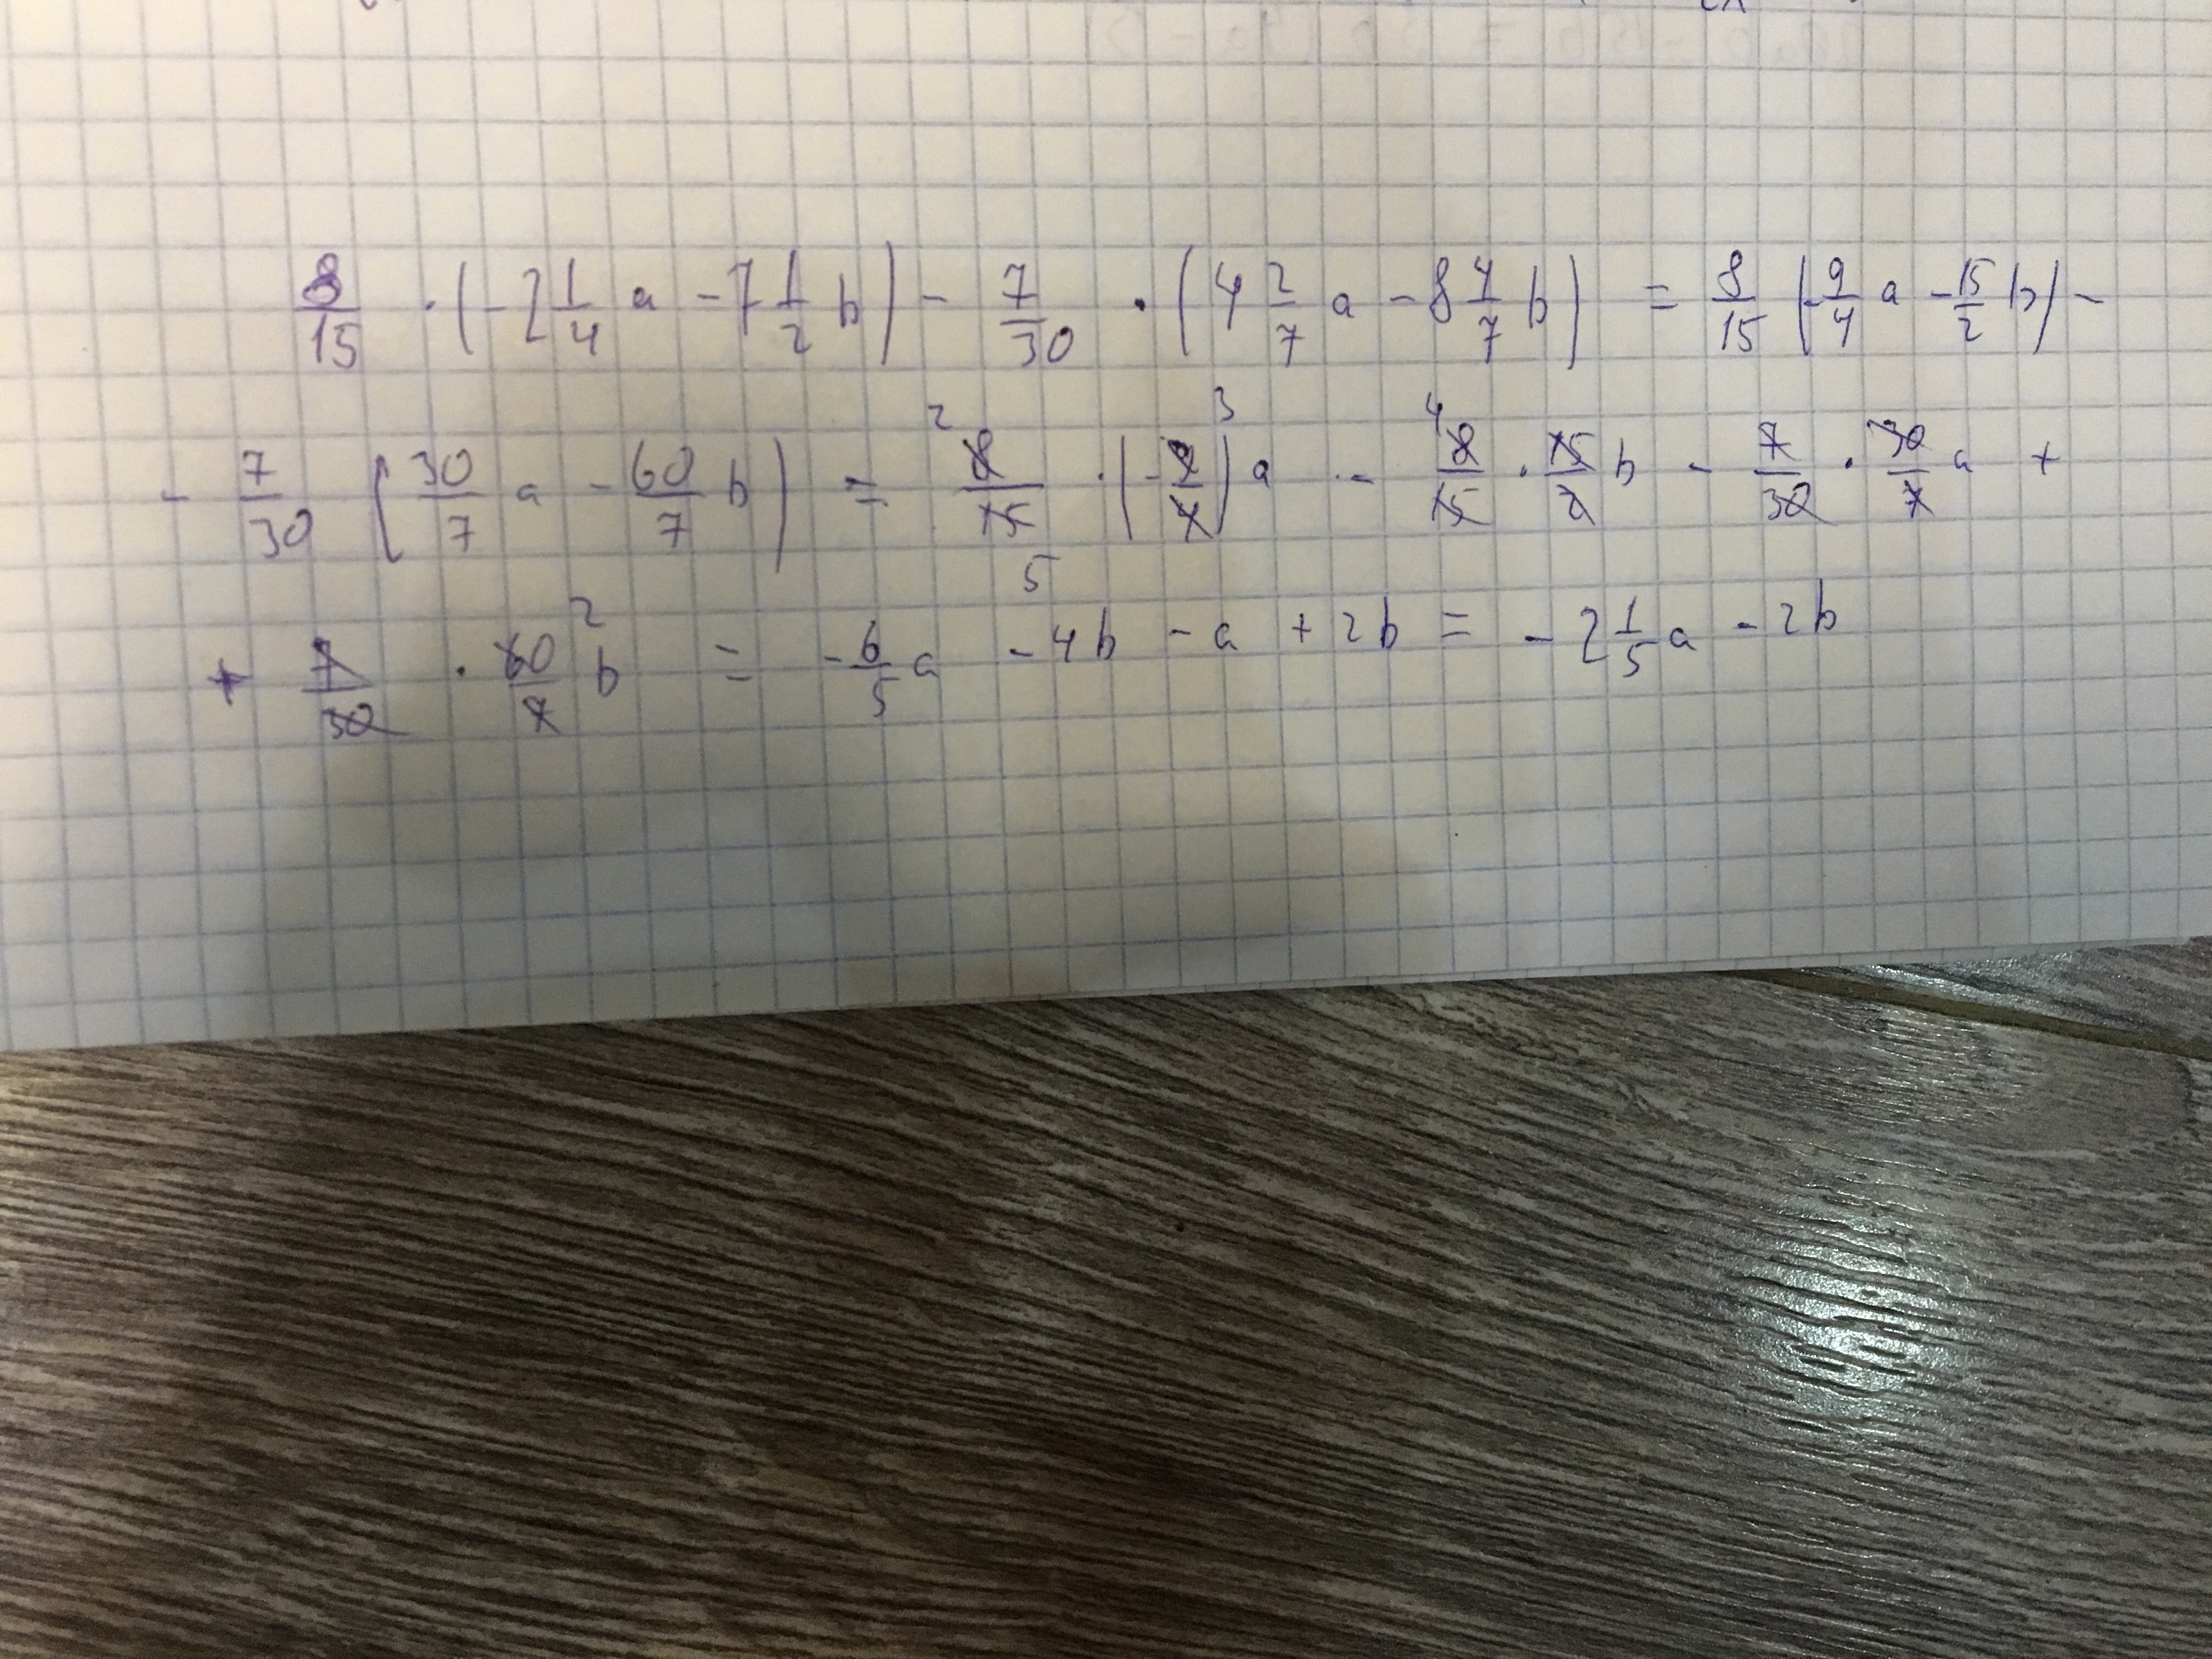 8/15 · (-2 1/4 a - 7 1/2 b) - 7/30 · (4 2/7 a - 8 4/7 b) = 8/15 (-9/4 a - 15/2 b) -
- 7/30 (30/7 a - 60/7 b) = 2 8/15 5 · (-9/4) 3 a - 4 8/15 · 15/2 b - 7/30 · 30/7 a +
+ 7/30 · 60/7 2 b = -6/5 a - 4b - a + 2b = -2 1/5 a - 2b